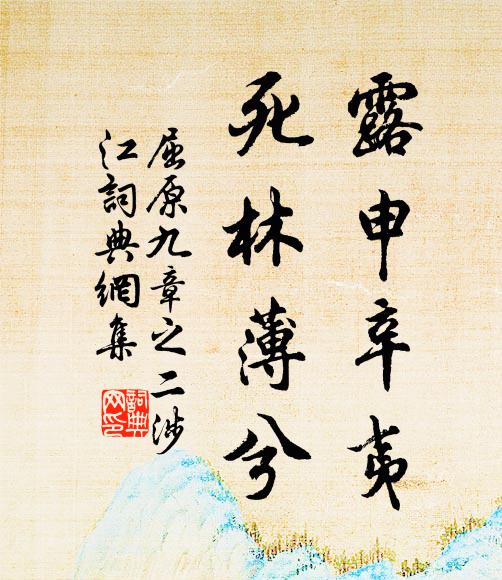 露申辛夷
死林薄兮
屈原九章之二涉
江詞典網集
詞典
网印